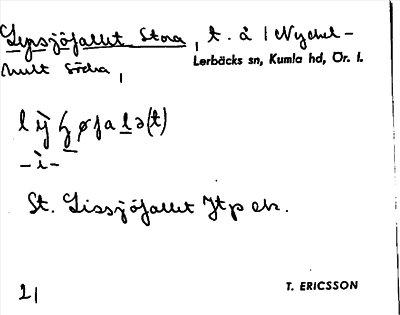 Lyssjöfallet Stora, t. å 1 Nyckel-
hult Södra,
Lerbäcks sn, Kumla hd, Ör. l.
-ì-
St. Lissjöfallet Jtp ek.
21
T. ERICSSON